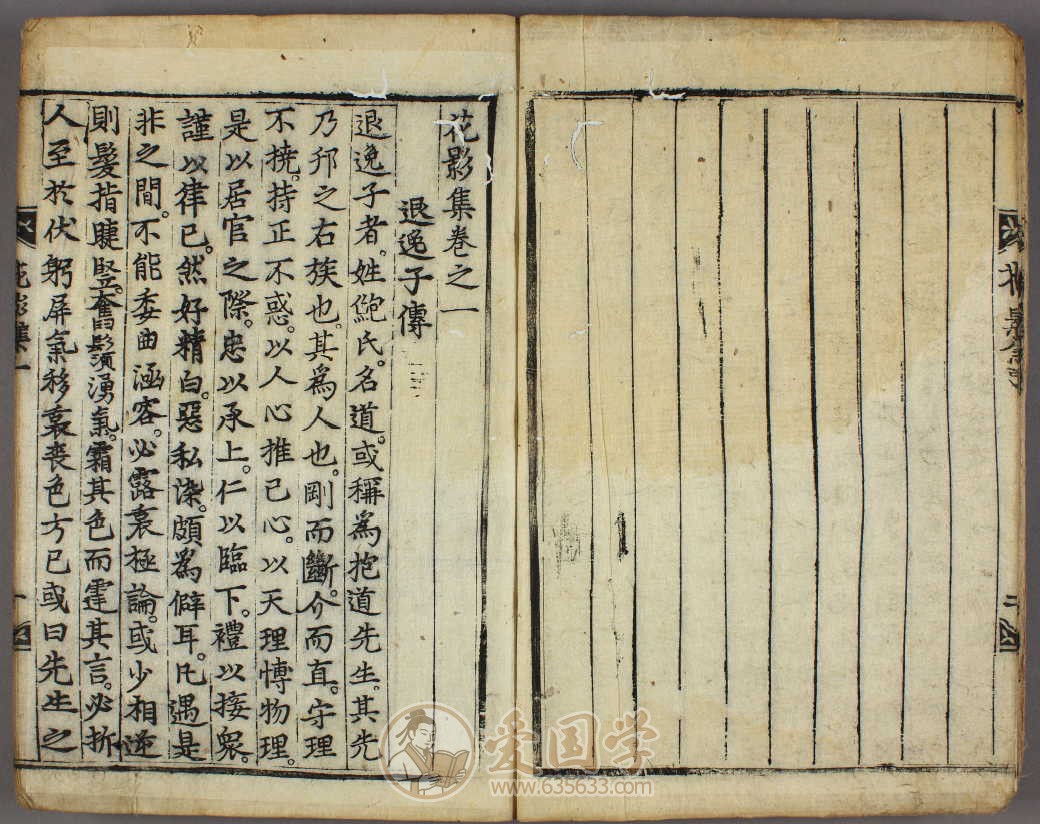 花影集卷之一
退逸子傳
退逸子者。姓鮑氏。名道。或稱為抱道先生。其先
乃邦之右族也。其為人也。剛而斷。介而直。守理
不撓。持正不惑。以人心推己心。以天理博物理。
是以居官之際。忠以承上。仁以臨下。禮以接衆。
謹以律己。然好精白。惡私染。頗為僻耳。凡遇是
非之間。不能委曲涵容。必露衷極論。或少相逆
則髮指睫豎。奮鬚湧氣。霜其色而霆其言。必折
人至於伏躬屏氣移衷喪色方已或曰先生之
花影集一
二
爱国学
www.635633.com